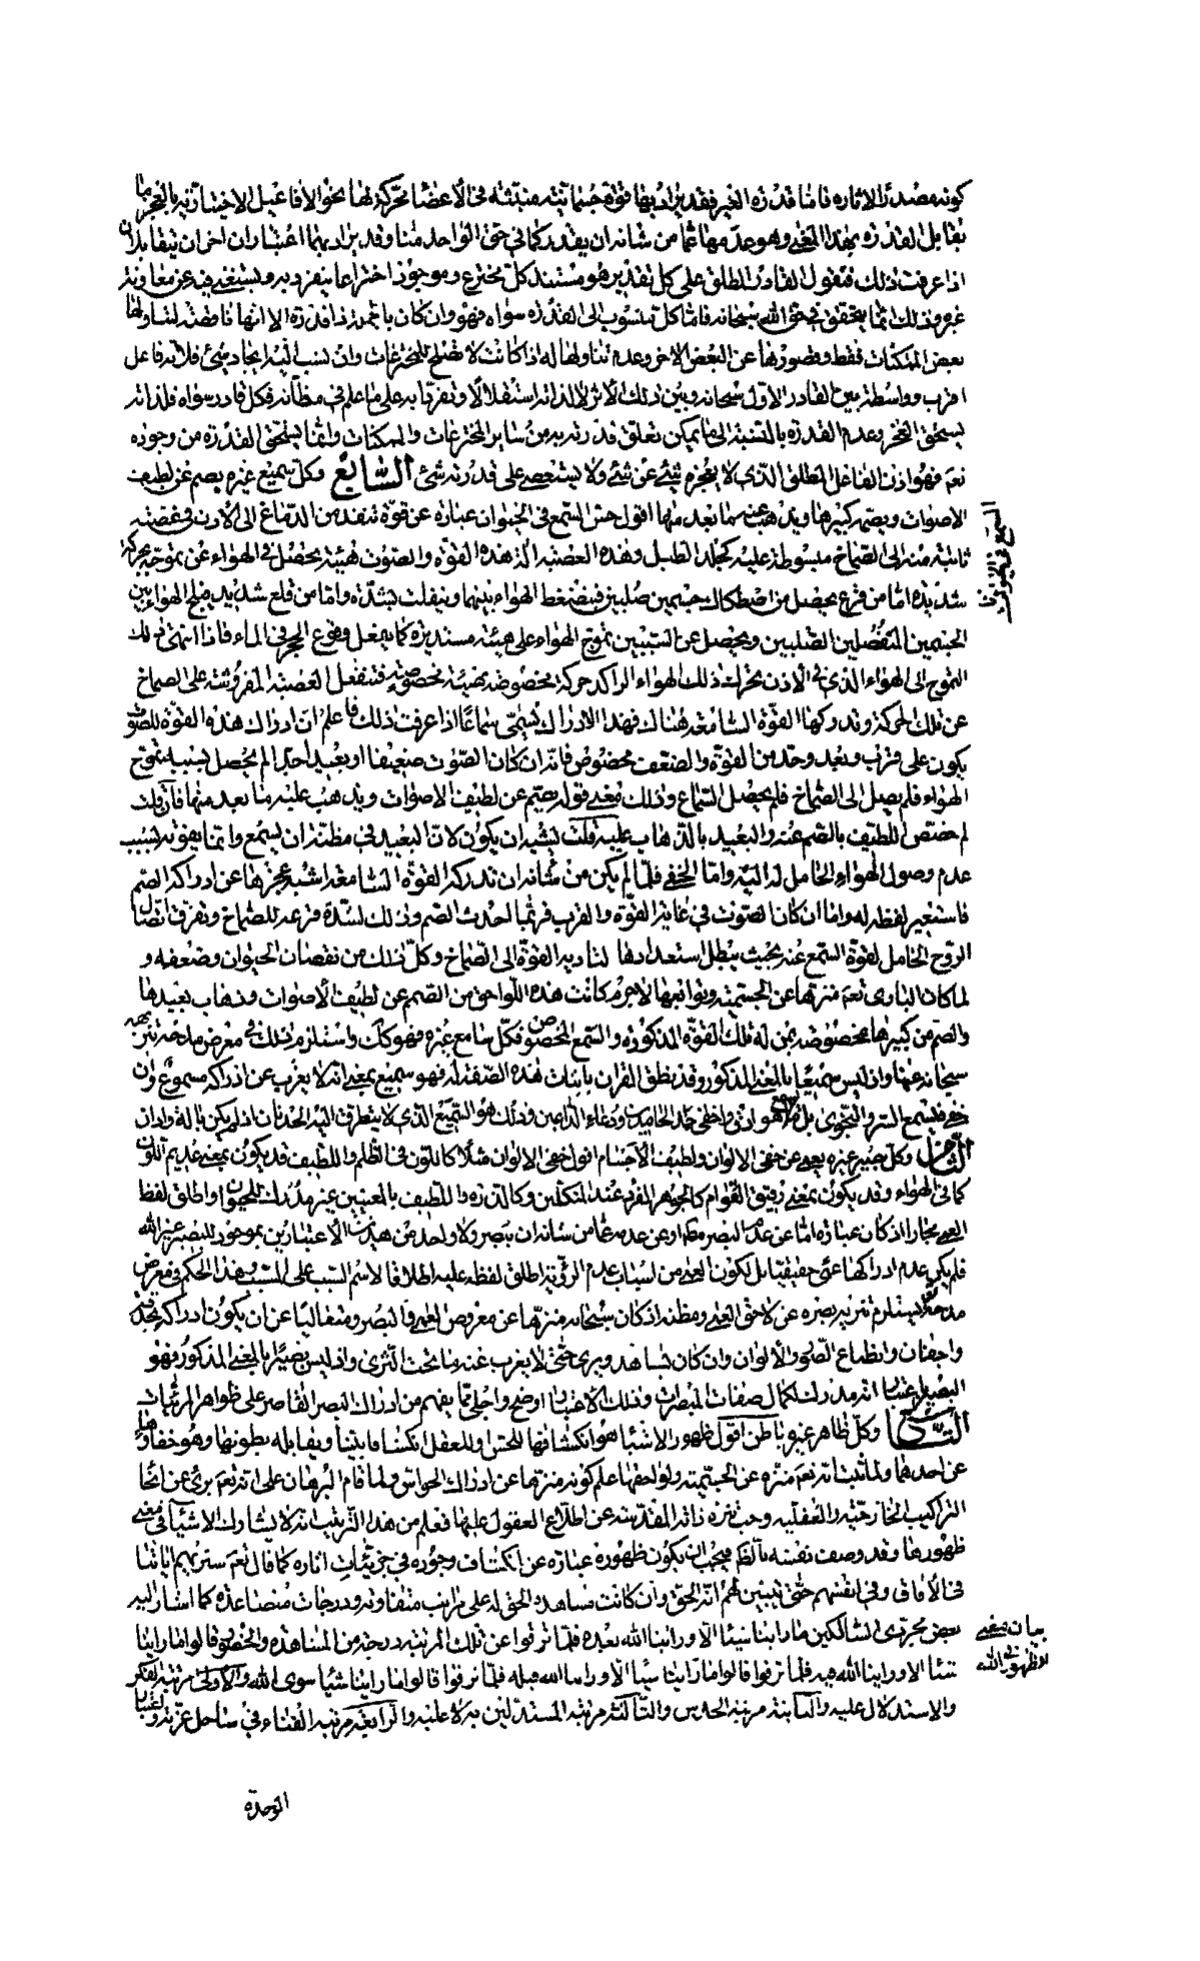 كونه مصدرا لآثاره فاما قدرة الغير فقد يراد بها قوة جسمانية منبثة فى الأعضاء محركة لها نحو الأفاعيل الاختيارية والعجز ما
يقابل القدرة بهذا المعنى وهو عدمها عما من شانه ان يقدر كما فى حق الواحد منا وقد يراد بهما اعتباران اخران يتقابلان
اذا عرفت ذلك فنقول القادر المطلق على كل تقدير هو مستند كل مخترع وموجود اختراعا ينفرد به ويستغنى فيه عن معاونة
غيره وذلك انما يتحقق فى حق الله سبحانه فاما كل منسوب الى القدرة سواه فهو وان كان بالجملة ذا قدرة الا انها ناقصة لتناولها
بعض الممكنات فقط وقصورها عن البعض الاخر وعدم تناولها له اذ كانت لا تصلح للمخترعات وان نسب اليه ايجاد شئ فلانه فاعل
اقرب وواسطة بين القادر الاول سبحانه وبين ذلك الاثر لا لذاته استقلالا وتفردا به على ما علم فى مظانه فكل قادر سواه فلذاته
يستحق العجز وعدم القدرة بالنسبة الى ما يمكن تعلق قدرته به من ساير المخترعات والممكنات وانما يستحق القدرة من وجوده
تعم فهو اذن الفاعل المطلق الذى لا يعجزه شئ عن شئ ولا يستعصى على قدرته شئ السابع وكل سميع غيره يصم عن لطيف
الاصوات ويصمه كبيرها ويذهب عنه ما بعد منها اقول حس السمع فى الحيوان عبارة عن قوة تنفذ من الدماغ الى الاذن فى عصبة
ثابتة منه الى الصماخ مبسوطة عليه كجلد الطبل وهذه العصبة آلة هذه القوة والصوت هيئة يحصل فى الهواء عن تموجه بحركة
شديدة اما من قرع يحصل من اصطكاك جسمين صلبين فيضغط الهواء بينهما وينفلت بشدة واما من قلع شديد فيلج الهواء بين
الجسمين المنفصلين الصلبين ويحصل عن السببين تموج الهواء على هيئة مستديرة كما يفعل وقوع الحجر فى الماء فاذا انتهى ذلك
التموج الى الهواء الذى فى الأذن تحرك ذلك الهواء الراكد حركة مخصوصة بهيئة مخصوصة فتنفعل العصبة المفروشة على الصماخ
عن تلك الحركة وتدركها القوة السامعة هناك فهذا الادراك يسمى سماعا اذا عرفت ذلك فاعلم ان ادراك هذه القوة للصوت
يكون على قرب وبعد وحد من القوة والضعف مخصوص فانه ان كان الصوت ضعيفا او بعيدا جدا لم يحصل بسببه تموج
الهواء فلم يصل الى الصماخ فلم يحصل السماع وذلك معنى قوله يصم عن لطيف الاصوات ويذهب عليه ما بعد منها فان قلت
لم خصص اللطيف بالصمم عنه والبعيد بالذهاب عليه قلت يشبه ان يكون لان البعيد فى مظنة ان يسمع وانما يفوته بسبب
عدم وصول الهواء الحامل له اليه واما الخفى فلما لم يكن من شانه ان تدركه القوة السامعة اشبه عجزها عن ادراكه الصم
فاستعير لفظه له واما ان كان الصوت فى غاية القوة والقرب فربما احدث الصم وذلك لشدة قرعه للصماخ وتفرق اتصال
الروح الحامل لقوة السمع عنه بحيث يبطل استعدادها لتادية القوة الى الصماخ وكل ذلك من نقصان الحيوان وضعفه و
لما كان البارى تعم منزها عن الجسمية وتوابعها لا جرم كانت هذه اللواحق من الصمم عن لطيف الأصوات وذهاب بعيدها
والصم من كبيرها مخصوصة بمن له تلك القوة المذكورة والسمع المخصوص فكل سامع غيره فهو كك واستلزم ذلك فى معرض مدحه تنزيهه
سبحانه عنها واذ ليس سميعا بالمعنى المذكور وقد نطق القران باثبات هذه الصفة له فهو سميع بمعنى انه لا يعزب عن ادراكه مسموع وان
خفى فيسمع السر والنجوى بل ما هو ادق واخفى حمد الحامدين ودعاء الداعين وذلك هو السميع الذى لا يتطرق اليه الحدثان اذ لم يكن بالة واذان
الثامن وكل بصير غيره يعمى عن خفى الالوان ولطيف الأجسام اقول خفى الالوان مثلا كاللون فى الظلمة واللطيف قد يكون بمعنى عديم اللون
كما فى الهواء وقد يكون بمعنى رقيق القوام كالجوهر الفرد عند المتكلمين وكالذرة واللطيف بالمعنيين غير مدرك للحيوان واطلق لفظ
العمى مجازا اذ كان عبارة اما عن عدم البصر مطلقا او عن عدمه عما من شانه ان يبصر ولا واحد من هذين الاعتبارين بموجود للبصير غير الله
فلم يكن عدم ادراكها عمى حقيقيا بل لكون العمى من اسباب عدم الرؤية اطلق لفظه عليه اطلاقا لاسم السبب على المسبب وهذا الحكم فى معرض
مدحه يستلزم تنزيه بصره عن لاحق العمى ومظنه اذ كان سبحانه منزها عن معروض العمى والبصر ومتعاليا عن ان يكون ادراكه بحدقة
واجفان وانطباع الصور والألوان وان كان يشاهد ويرى حتى لا يعزب عنه ما تحت الثرى واذ ليس بصيرا بالمعنى المذكور فهو
البصير باعتبار انه مدرك لكمال صفات المبصرات وذلك الاعتبار اوضح واجلى مما يفهم من ادراك البصر القاصر على ظواهر المرئيات
التاسع وكل ظاهر غيره باطن اقول ظهور الاشياء هو انكشافها للحس او للعقل انكشافا بينا ويقابله بطونها وهو خفاؤها
عن احدهما ولما ثبت انه تعم منزه عن الجسمية ولواحقها علم كونه منزها عن ادراك الحواس ولما قام البرهان على انه تعم برئ عن انحاء
التراكيب الخارجية والعقلية وجب تنزه ذاته المقدسة عن اطلاع العقول عليها فعلم من هذا الترتيب انه لا يشارك الاشياء فى معنى
ظهورها وقد وصف نفسه بالظهور فيجب ان يكون ظهوره عبارة عن انكشاف وجوده فى جزئيات اثاره كما قال تعم سنريهم اياتنا
فى الآفاق وفى انفسهم حتى يتبين لهم انه الحق وان كانت مشاهدة الحق له على مراتب متفاوتة ودرجات متصاعدة كما اشار اليه
بعض مجردى السالكين ما راينا شيئا الا وراينا الله بعده فلما ترقوا عن تلك المرتبة درجة من المشاهدة والحضور قالوا ما راينا
شيئا الا وراينا الله فيه فلما ترقوا قالوا ما راينا شيئا الا وراينا الله قبله فلما ترقوا قالوا ما راينا شيئا سوى الله والاولى مرتبة الفكر
والاستدلال عليه والثانية مرتبة الحدس والثالثة مرتبة المستدلين به لا عليه والرابعة مرتبة الفناء فى ساحل عزته واعتبار
الوحدة
السمع فى الحيوان
بيان معنى
الظهور فى الله